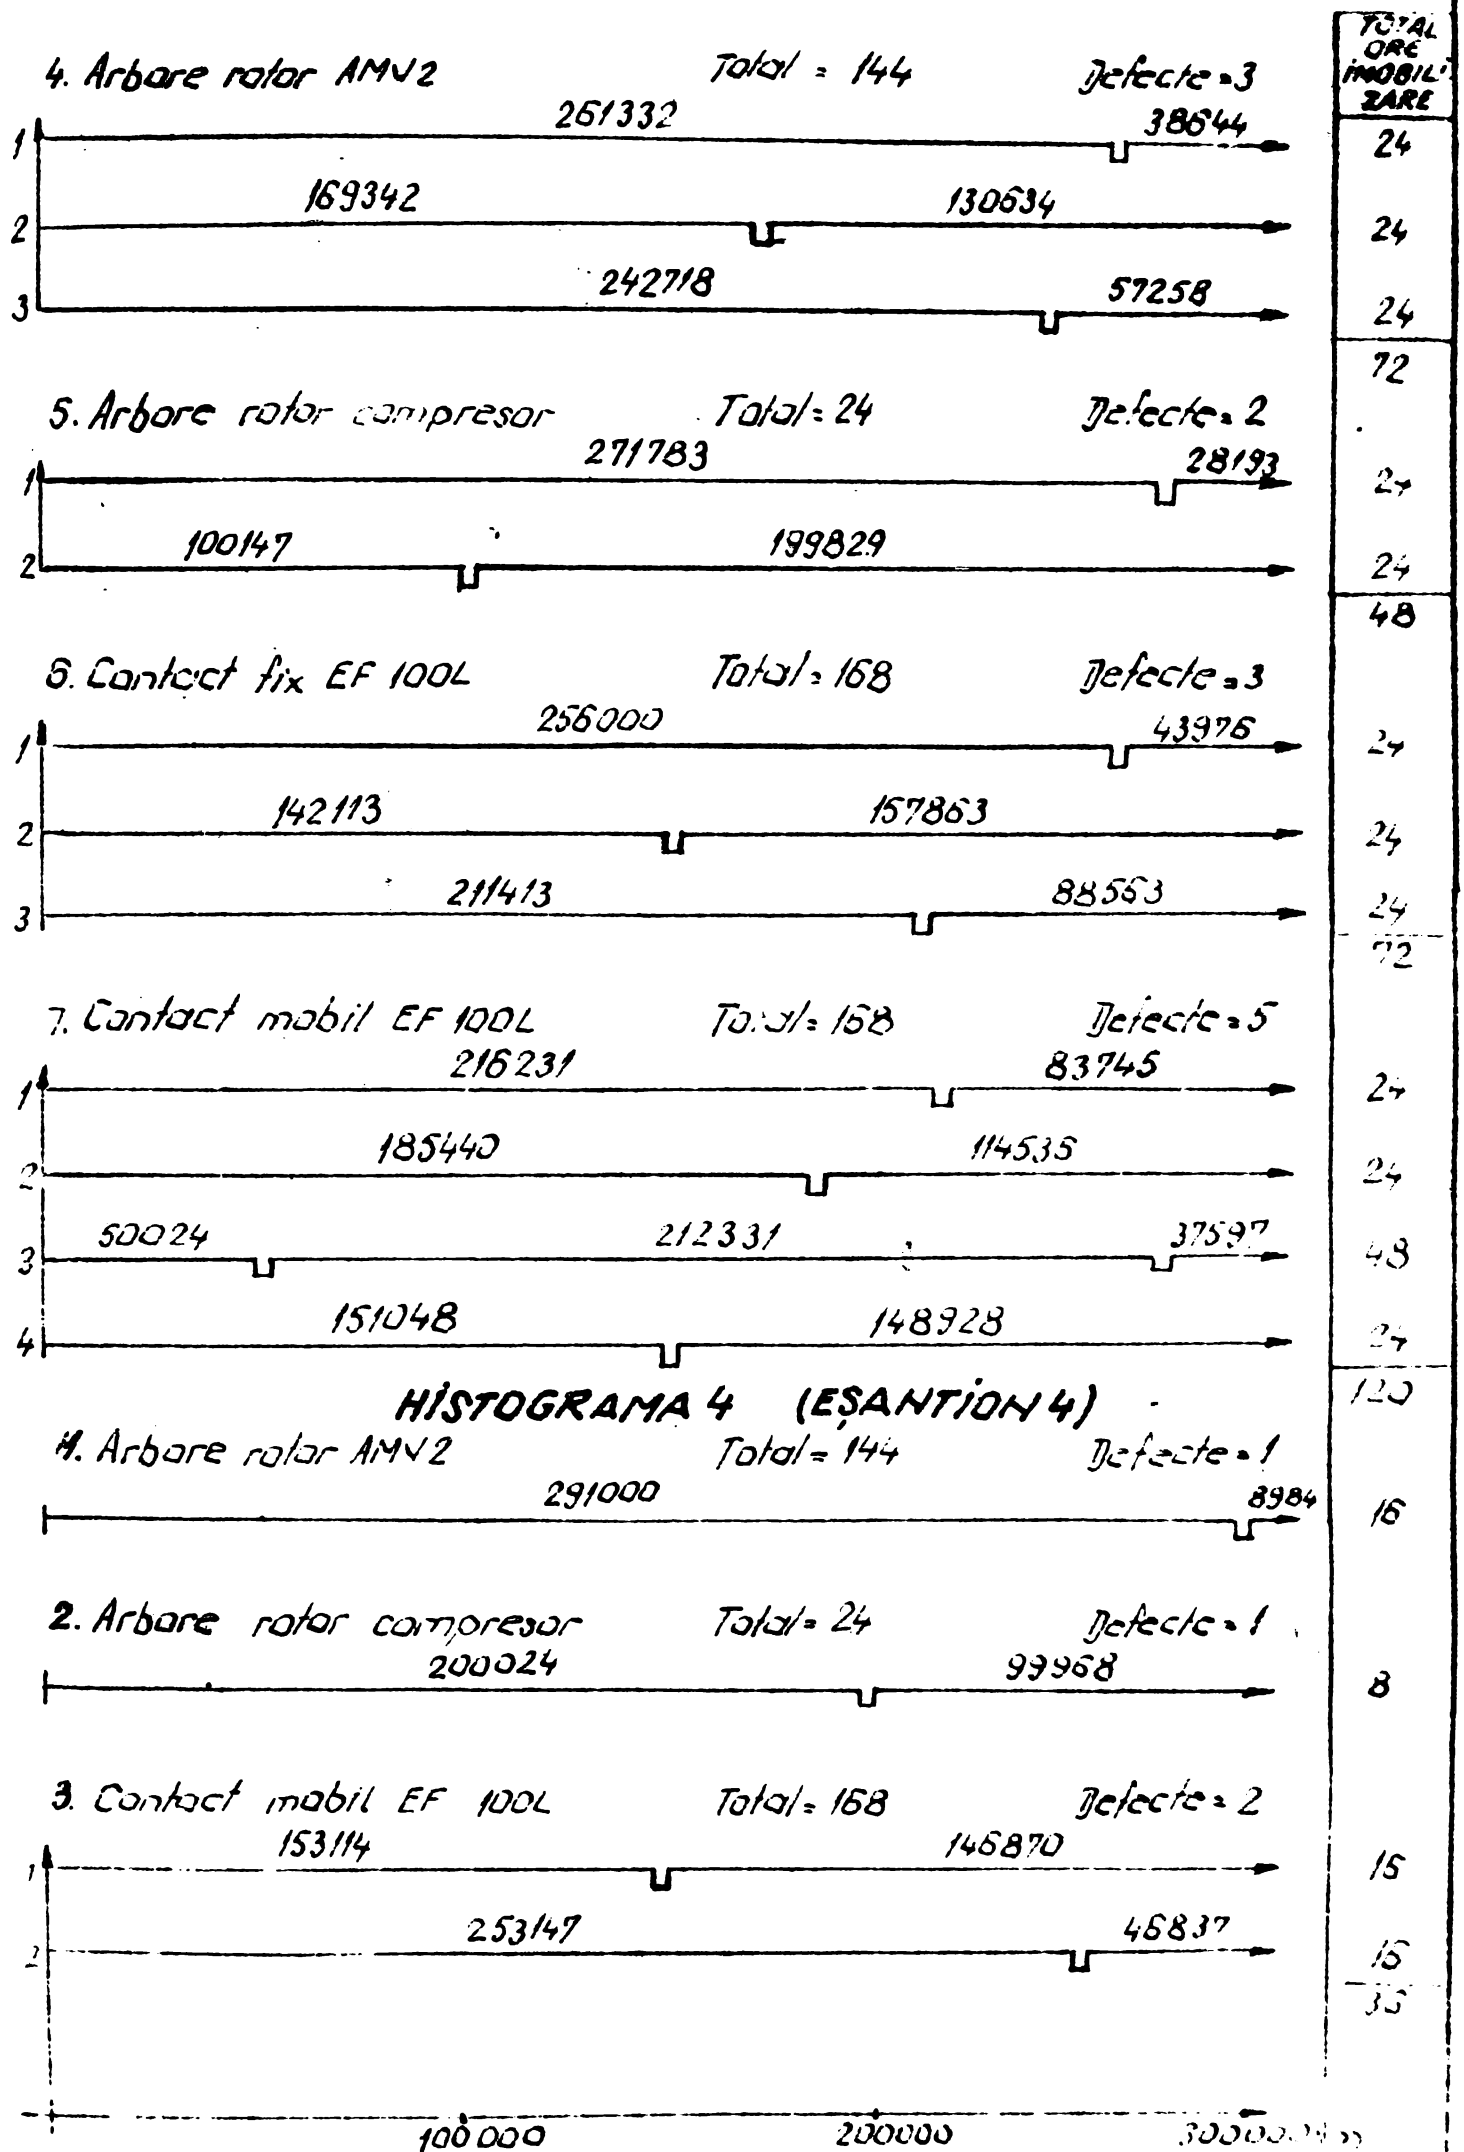 TOTAL
ORE
IMOBILI-
ZARE
4. Arbore rotor AMV2 Total = 144 Defecte = 3
1 261332 38644 24
2 169342 130634 24
3 242718 57258 24
72
5. Arbore rotor compresor Total = 24 Defecte = 2
1 271783 28193 24
2 100147 199829 24
48
6. Contact fix EF 100L Total = 168 Defecte = 3
1 256000 43976 24
2 142113 157863 24
3 211413 88563 24
72
7. Contact mobil EF 100L Total = 168 Defecte = 5
1 216231 83745 24
2 185440 114535 24
3 50024 212331 37597 48
4 151048 148928 24
120
HISTOGRAMA 4 (EŞANTION 4)
1. Arbore rotor AMV2 Total = 144 Defecte = 1
291000 8984 16
2. Arbore rotor compresor Total = 24 Defecte = 1
200024 99968 8
3. Contact mobil EF 100L Total = 168 Defecte = 2
1 153114 146870 16
2 253147 46837 16
36
100000 200000